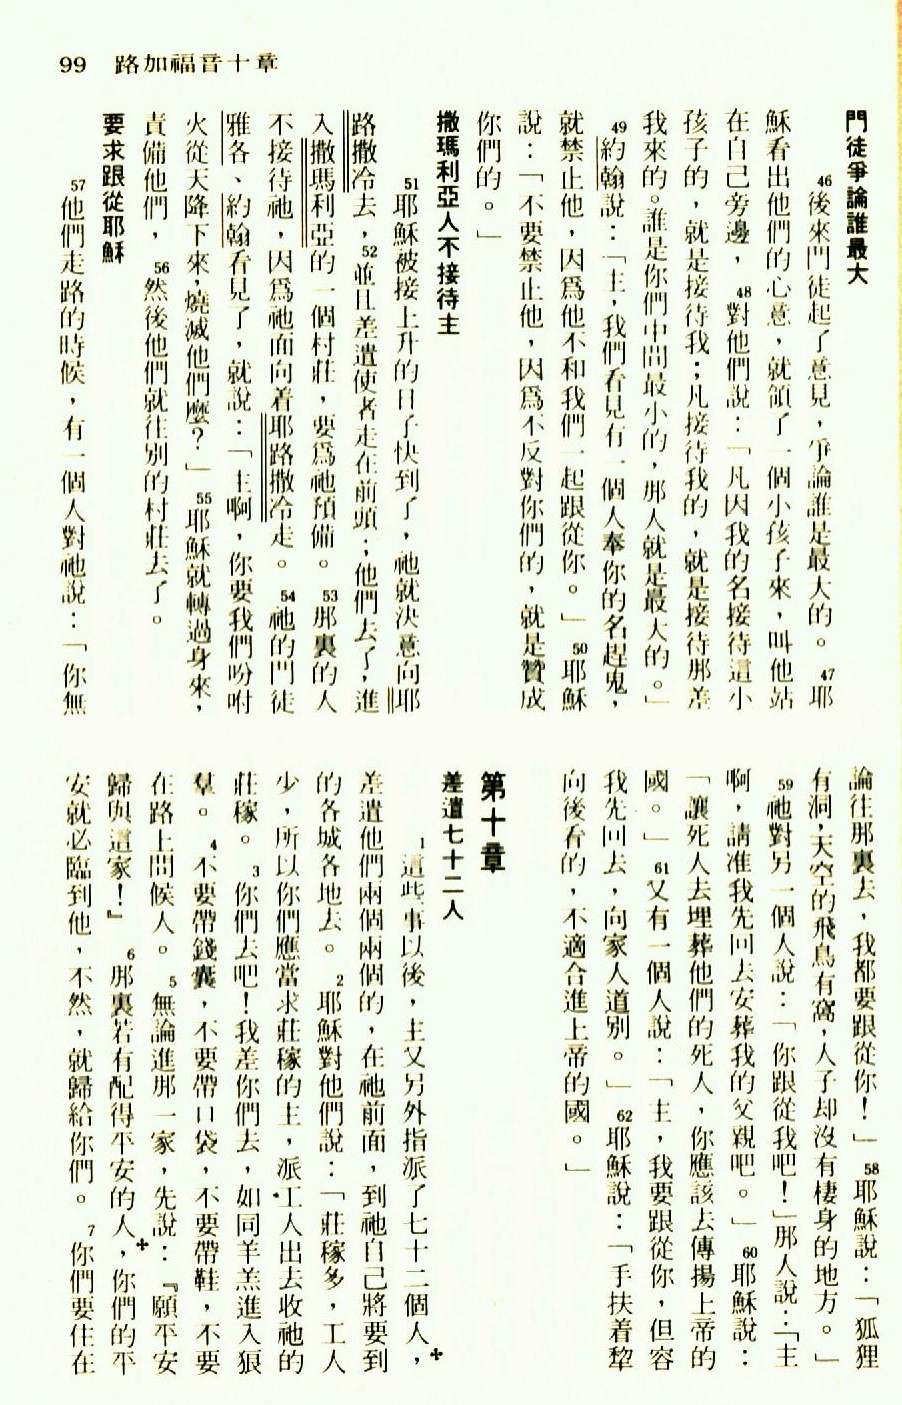 99　路加福音十章
門徒爭論誰最大
46後來門徒起了意見，爭論誰是最大的。47耶
穌看出他們的心意，就領了一個小孩子來，叫他站
在自己旁邊，48對他們說：「凡因我的名接待這小
孩子的，就是接待我；凡接待我的，就是接待那差
我來的。誰是你們中間最小的，那人就是最大的。」
49約翰說：「主，我們看見有一個人奉你的名趕鬼，
就禁止他，因爲他不和我們一起跟從你。」50耶穌
說：「不要禁止他，因爲不反對你們的，就是贊成
你們的。」
撒瑪利亞人不接待主
51耶穌被接上升的日子快到了，祂就決意向耶
路撒冷去，52並且差遣使者走在前頭；他們去了，進
入撒瑪利亞的一個村莊，要爲祂預備。53那裏的人
不接待祂，因爲祂面向着耶路撒冷走。54祂的門徒
雅各、約翰看見了，就說：「主啊，你要我們吩咐
火從天降下來，燒滅他們麼？」55耶穌就轉過身來，
責備他們，56然後他們就往別的村莊去了。
要求跟從耶穌
57他們走路的時候，有一個人對祂說：「你無
論往那裏去，我都要跟從你！」58耶穌說：「狐狸
有洞，天空的飛鳥有窩，人子却沒有棲身的地方。」
59祂對另一個人說：「你跟從我吧！」那人說：「主
啊，請准我先回去安葬我的父親吧。」60耶穌說：
「讓死人去埋葬他們的死人，你應該去傳揚上帝的
國。」61又有一個人說：「主，我要跟從你，但容
我先回去，向家人道別。」62耶穌說：「手扶着犂
向後看的，不適合進上帝的國。」
第十章
差遣七十二人
1這些事以後，主又另外指派了七十二個人，✢
差遣他們兩個兩個的，在祂前面，到祂自己將要到
的各城各地去。2耶穌對他們說：「莊稼多，工人
少，所以你們應當求莊稼的主，派工人出去收祂的
莊稼。3你們去吧！我差你們去，如同羊羔進入狼
羣。4不要帶錢囊，不要帶口袋，不要帶鞋，不要
在路上問候人。5無論進那一家，先說：『願平安
歸與這家！』6那裏若有配得平安的人，✢你們的平
安就必臨到他，不然，就歸給你們。7你們要住在